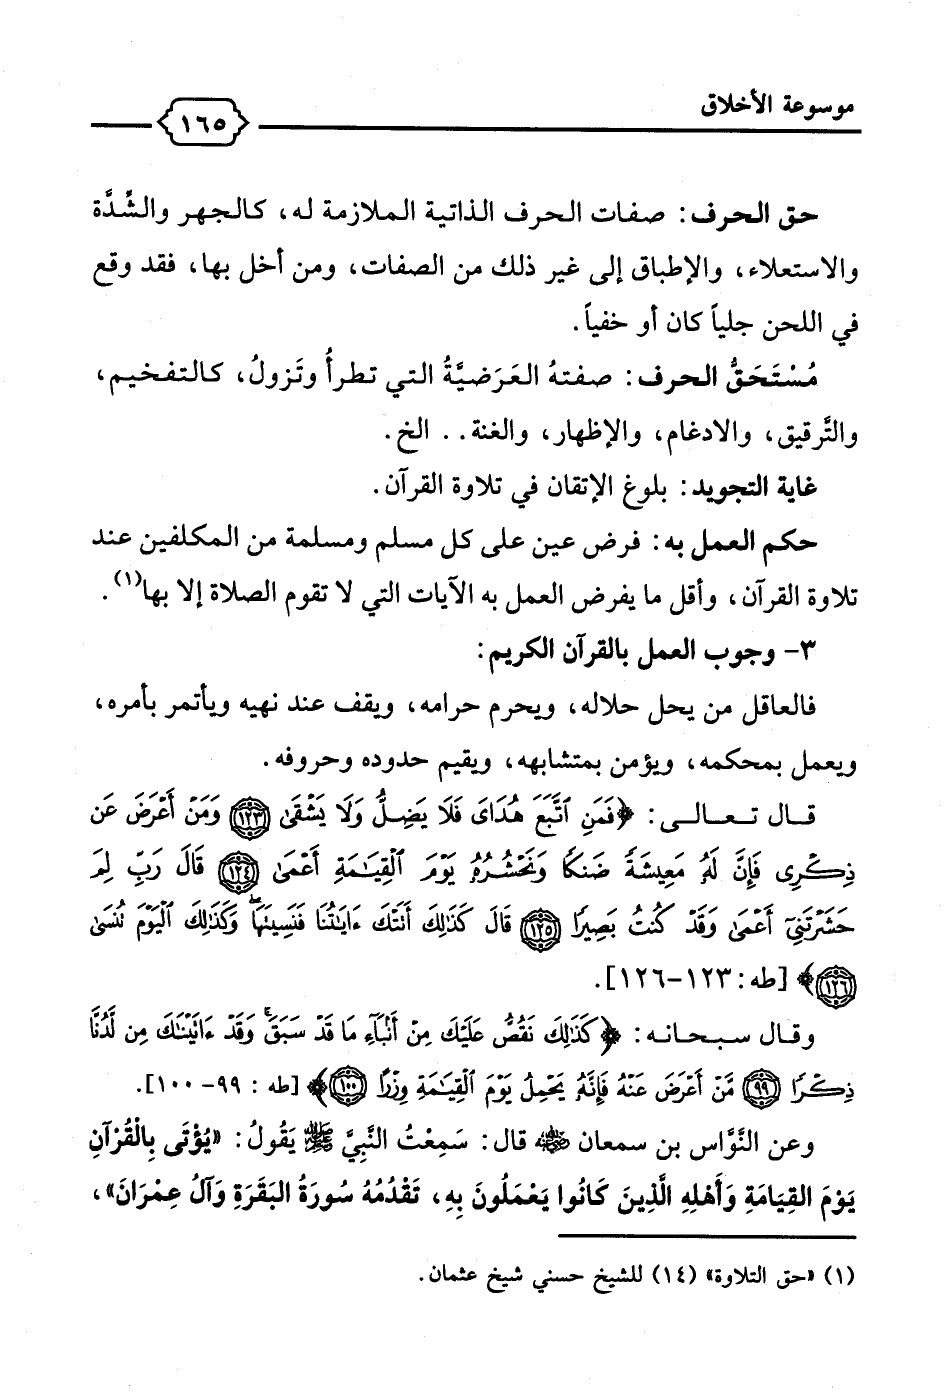 موسوعة الأخلاق
١٦٥
حق الحرف: صفات الحرف الذاتية الملازمة له، كالجهر والشِّدَّة
والاستعلاء، والإطباق إلى غير ذلك من الصفات، ومن أخل بها، فقد وقع
في اللحن جلياً كان أو خفياً.
مُسْتَحَقُّ الحرف: صفتهُ العَرَضيَّةُ التي تطرأُ وتَزولُ، كالتفخيم،
والتَّرقيق، والادغام، والإظهار، والغنة.. الخ.
غاية التجويد: بلوغ الإتقان في تلاوة القرآن.
حكم العمل به: فرض عين على كل مسلم ومسلمة من المكلفين عند
تلاوة القرآن، وأقل ما يفرض العمل به الآيات التي لا تقوم الصلاة إلا بها(١).
٣- وجوب العمل بالقرآن الكريم:
فالعاقل من يحل حلاله، ويحرم حرامه، ويقف عند نهيه ويأتمر بأمره،
ويعمل بمحكمه، ويؤمن بمتشابهه، ويقيم حدوده وحروفه.
قال تعالى: ﴿فَمَنِ ٱتَّبَعَ هُدَايَ فَلَا يَضِلُّ وَلَا يَشْقَىٰ ١٢٣ وَمَنْ أَعْرَضَ عَن
ذِكْرِى فَإِنَّ لَهُۥ مَعِيشَةً ضَنكًا وَنَحْشُرُهُۥ يَوْمَ ٱلْقِيَٰمَةِ أَعْمَىٰ ١٢٤ قَالَ رَبِّ لِمَ
حَشَرْتَنِىٓ أَعْمَىٰ وَقَدْ كُنتُ بَصِيرًا ١٢٥ قَالَ كَذَٰلِكَ أَتَتْكَ ءَايَٰتُنَا فَنَسِينَهَا ۖ وَكَذَٰلِكَ ٱلْيَوْمَ تُنسَىٰ
١٢٦﴾ [طه: ١٢٣-١٢٦].
وقال سبحانه: ﴿كَذَٰلِكَ نَقُصُّ عَلَيْكَ مِنْ أَنۢبَآءِ مَا قَدْ سَبَقَ ۚ وَقَدْ ءَاتَيْنَٰكَ مِن لَّدُنَّا
ذِكْرًا ٩٩ مَّنْ أَعْرَضَ عَنْهُ فَإِنَّهُۥ يَحْمِلُ يَوْمَ ٱلْقِيَٰمَةِ وِزْرًا ١٠٠﴾ [طه : ٩٩-١٠٠].
وعن النَّوَّاس بن سمعان رضي الله عنه قال: سَمِعْتُ النَّبِيَّ ﷺ يَقُولُ: «يُؤْتَى بِالْقُرْآنِ
يَوْمَ القِيَامَةِ وَأَهْلِهِ الَّذِينَ كَانُوا يَعْمَلُونَ بِهِ، تَقْدُمُهُ سُورَةُ البَقَرَةِ وَآلُ عِمْرَانَ»،
(١) «حق التلاوة» (١٤) للشيخ حسني شيخ عثمان.